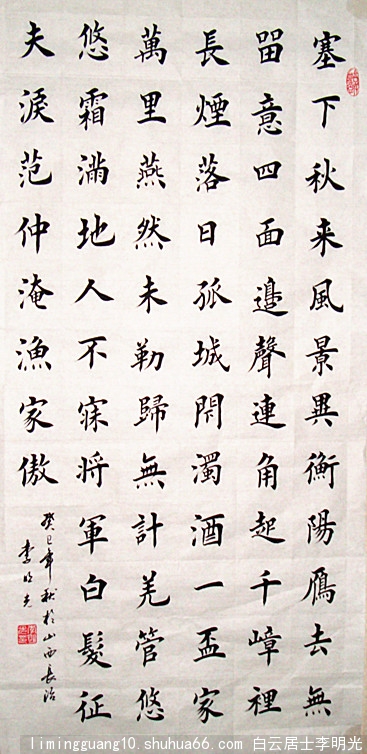 塞下秋来風景異衡陽鴈去無
畱意四面邉聲連角起千嶂裡
長煙落日孤城閇濁酒一盃家
萬里燕然未勒歸無計羌管悠
悠霜滿地人不寐將軍白髮征
夫淚范仲淹漁家傲
癸巳年秋於山西長治
李明光
limingguang10.shuhua66.com 白云居士李明光